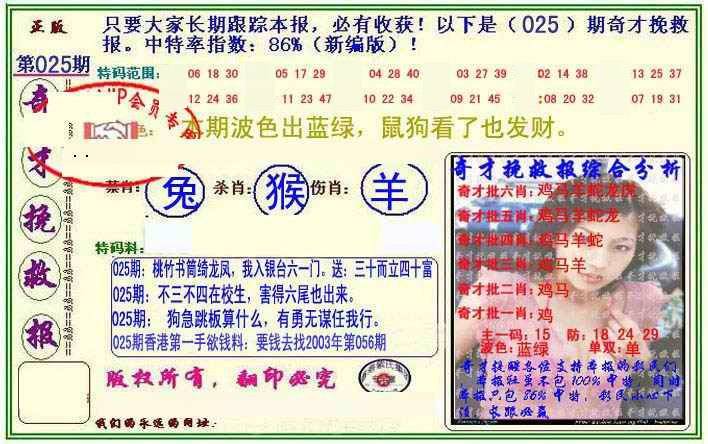 正版
只要大家长期跟踪本报，必有收获！以下是（025）期奇才挽救
报。中特率指数：86%（新编版）！
第025期
特码范围：
06 18 30 05 17 29 04 28 40 03 27 39 02 14 38 13 25 37
12 24 36 11 23 47 10 22 34 09 21 45 :08 20 32 07 19 31
"P会员专
色：本期波色出蓝绿，鼠狗看了也发财。
奇才挽救报
禁肖：兔 杀肖：猴 伤肖：羊
特码料：
025期：桃竹书筒绮龙凤，我入银台六一门。送：三十而立四十富
025期：不三不四在校生，害得六尾也出来。
025期： 狗急跳板算什么，有勇无谋任我行。
025期香港第一手欲钱料：要钱去找2003年第056期
版权所有，翻印必究
我们的永远的网址：
奇才挽救报综合分析
奇才批六肖：鸡马羊蛇龙虎
奇才批五肖：鸡马羊蛇龙
奇才批四肖：鸡马羊蛇
奇才批三肖：鸡马羊
奇才批二肖：鸡马
奇才批一肖：鸡
主一码：15 防：18 24 29
波色：蓝绿 单双：单
奇才挽救各位支持本报的彩民们
本报狂虽不包100%中特，同时
本报只包86%中特，彩民小心下
注